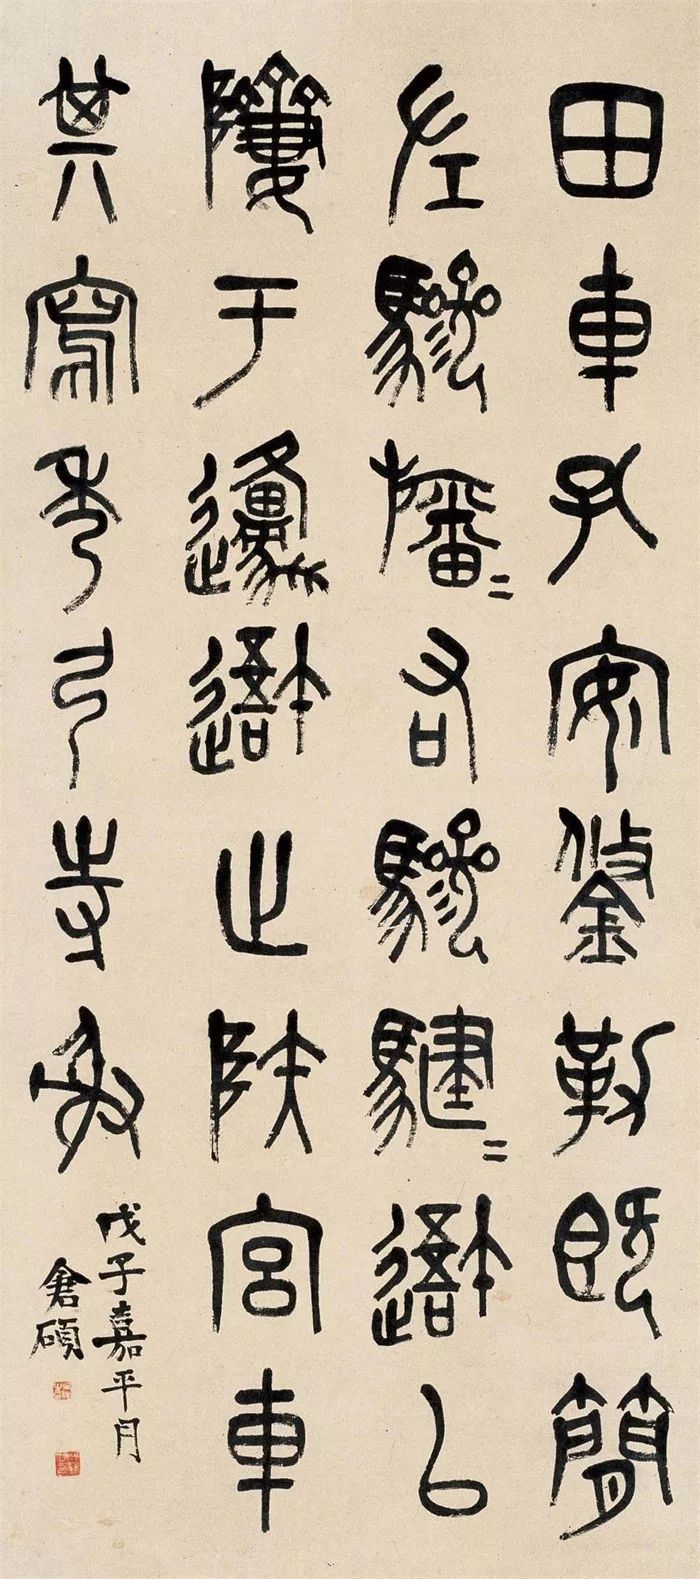 田車孔安鋚勒既簡
左驂旛〻右驂騝〻䢒以
隮于邍䢒止陕宮車
其寫秀弓寺射
戊子嘉平月
倉碩